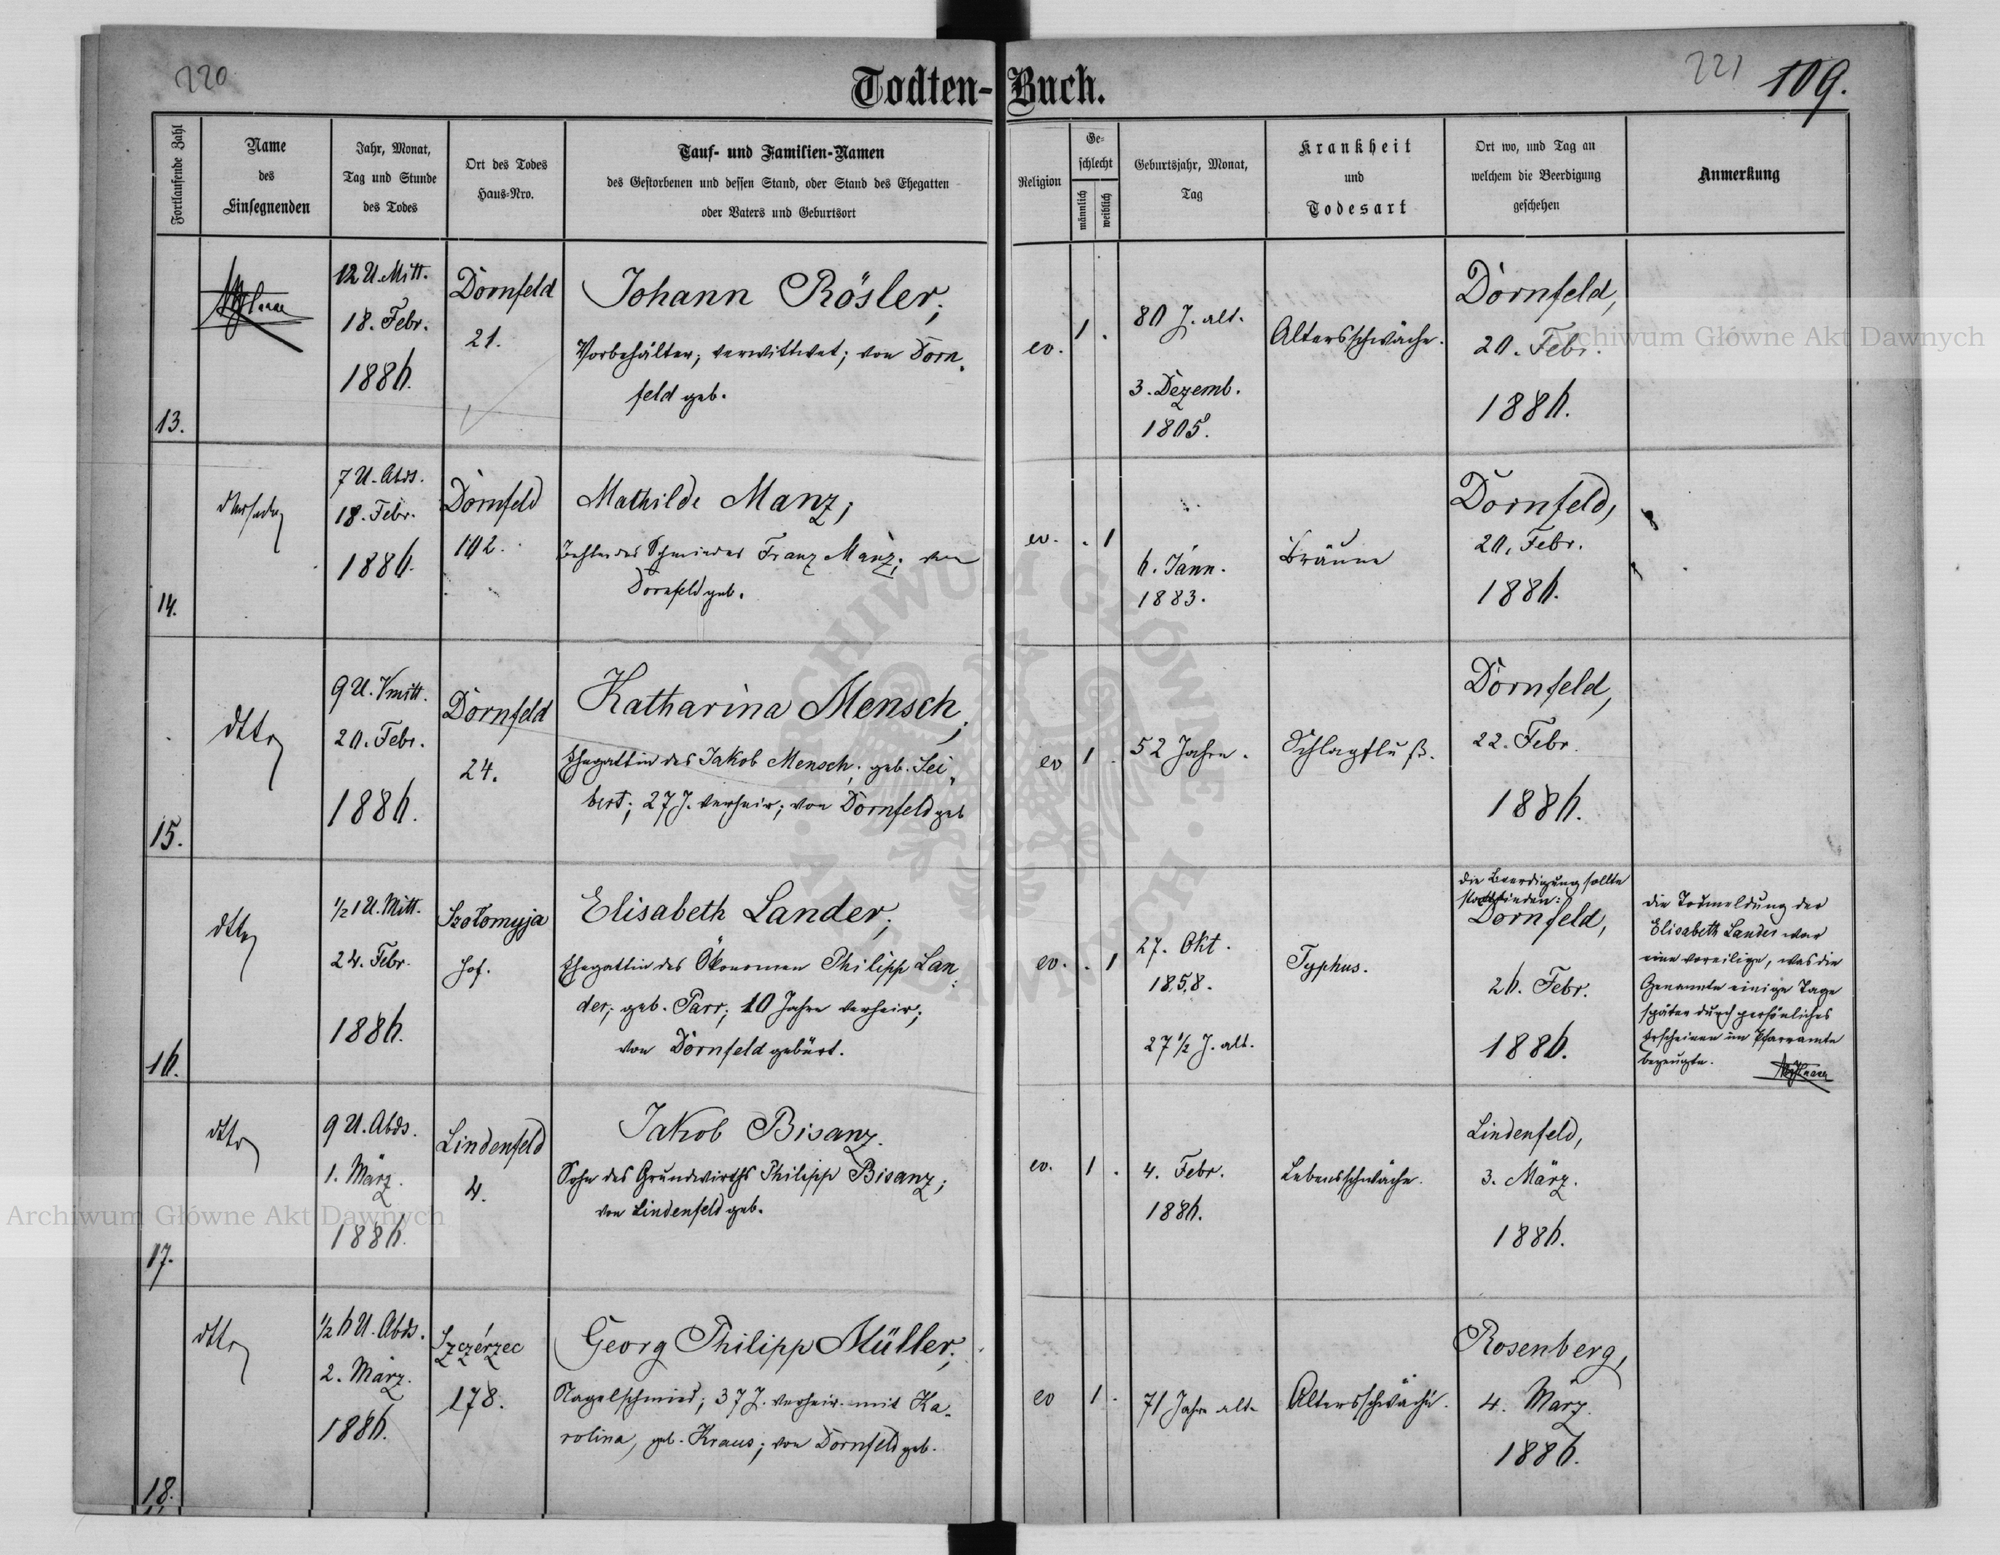 220
221
109.
Todten-Buch.
Fortlaufende Zahl
Name
des
Einsegnenden
Jahr, Monat,
Tag und Stunde
des Todes
Ort des Todes
Haus-Nro.
Tauf- und Familien-Namen
des Gestorbenen und dessen Stand, oder Stand des Ehegatten
oder Vaters und Geburtsort
Religion
Ge-
schlecht
männlich
weiblich
Geburtsjahr, Monat,
Tag
Krankheit
und
Todesart
Ort wo, und Tag an
welchem die Beerdigung
geschehen
Anmerkung
13.
12 U. Mitt.
18. Febr.
1886.
Dornfeld
21.
Johann Rösler;
Vorbehälter; verwittwet; von Dorn-
feld geb.
ev.
1 .
80 J. alt.
3. Dezemb.
1805.
Altersschwäche.
Dornfeld,
20. Febr.
1886.
14.
derselbe
7 U. Abds.
18. Febr.
1886.
Dornfeld
102.
Mathilde Manz;
des Schmiedes Franz Manz; von
Dornfeld geb.
ev.
. 1
6. Jänn.
1883.
Bräune
Dornfeld,
20. Febr.
1886.
15.
dtto
9 U. Vmitt.
20. Febr.
1886.
Dornfeld
24.
Katharina Mensch,
Ehegattin des Jakob Mensch; geb. Sei-
bert; 27 J. verheir; von Dornfeld geb
ev
1 .
52 Jahre.
Schlagfluß.
Dornfeld,
22. Febr.
1886.
16.
dtto
1/2 1 U. Mitt.
24. Febr.
1886.
Szołomyja
Hof.
Elisabeth Lander;
Ehegattin des Ökonomen Philipp Lan-
der; geb. Parr; 10 Jahre verheir;
von Dornfeld gebürt.
ev.
. 1
27. Okt.
1858.
27 1/2 J. alt.
Typhus.
Die Beerdigung sollte
stattfinden:
Dornfeld,
26. Febr.
1886.
Die Todmeldung der
Elisabeth Lander war
eine voreilige, was die
Genannte einige Tage
später durch persönliches
Erscheinen im Pfarramte
bezeugte.
17.
dtto
9 U. Abds.
1. März.
1886.
Lindenfeld
4.
Jakob Bisanz.
Sohn des Grundwirths Philipp Bisanz;
von Lindenfeld geb.
ev.
1 .
4. Febr.
1886.
Lebensschwäche.
Lindenfeld,
3. März.
1886.
18.
dtto
1/2 6 U. Abds.
2. März.
1886.
Szczérzec
178.
Georg Philipp Müller;
Nagelschmied; 37 J. verheir. mit Ka-
rolina, geb. Kraus; von Dornfeld geb.
ev
1 .
71 Jahre alt.
Altersschwäche.
Rosenberg,
4. März.
1886.
Archiwum Główne Akt Dawnych
Archiwum Główne Akt Dawnych
ARCHIWUM GŁÓWNE · AKT DAWNYCH ·